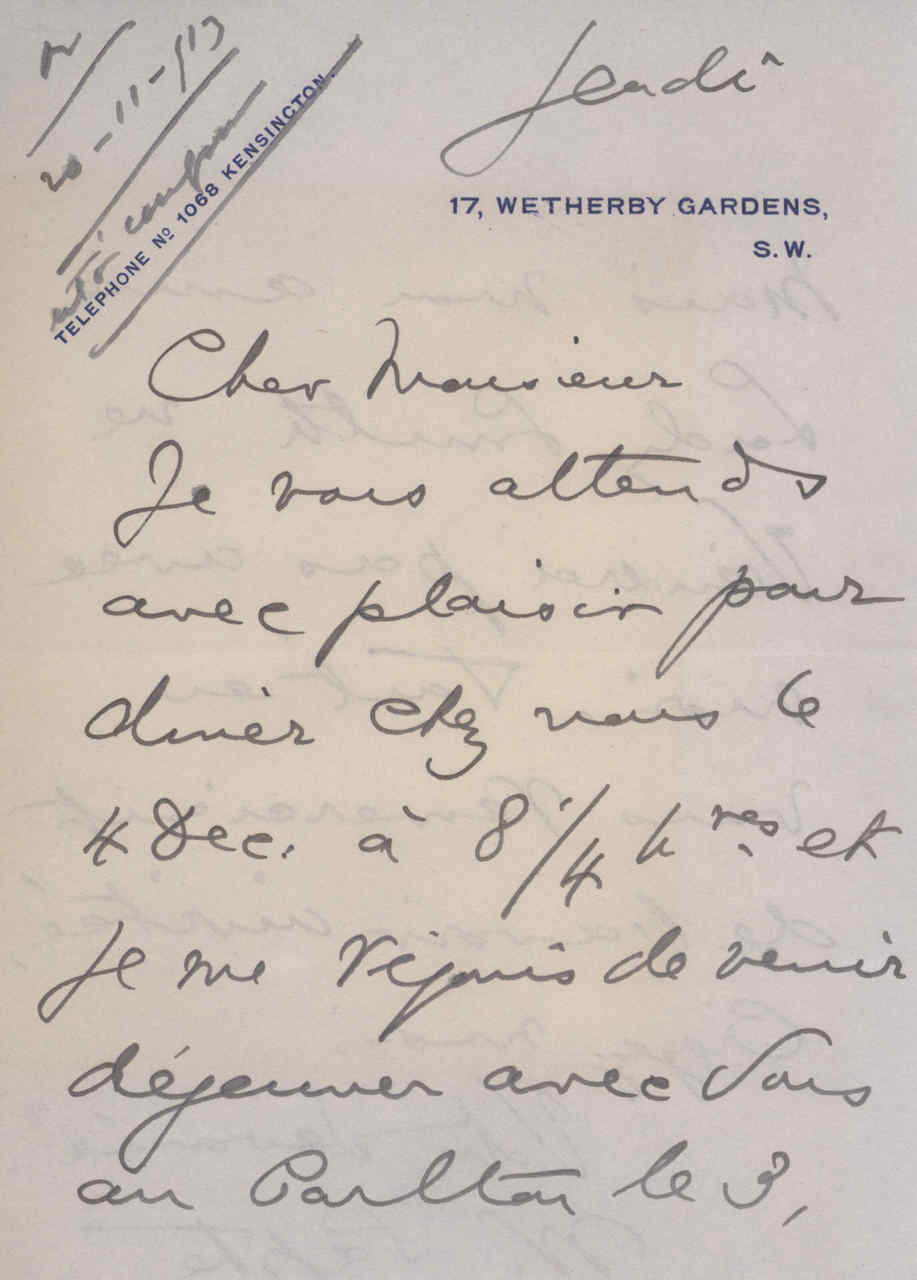 20-11-/13
TELEPHONE Nº 1068 KENSINGTON.
Jeudi
17, WETHERBY GARDENS,
S.W.
Cher Monsieur
Je vous attends
avec plaisir pour
diner chez nous le
4 Dec. à 8 1/4 hres et
je me réjouis de venir
déjeuner avec vous
au Carlton le 3,